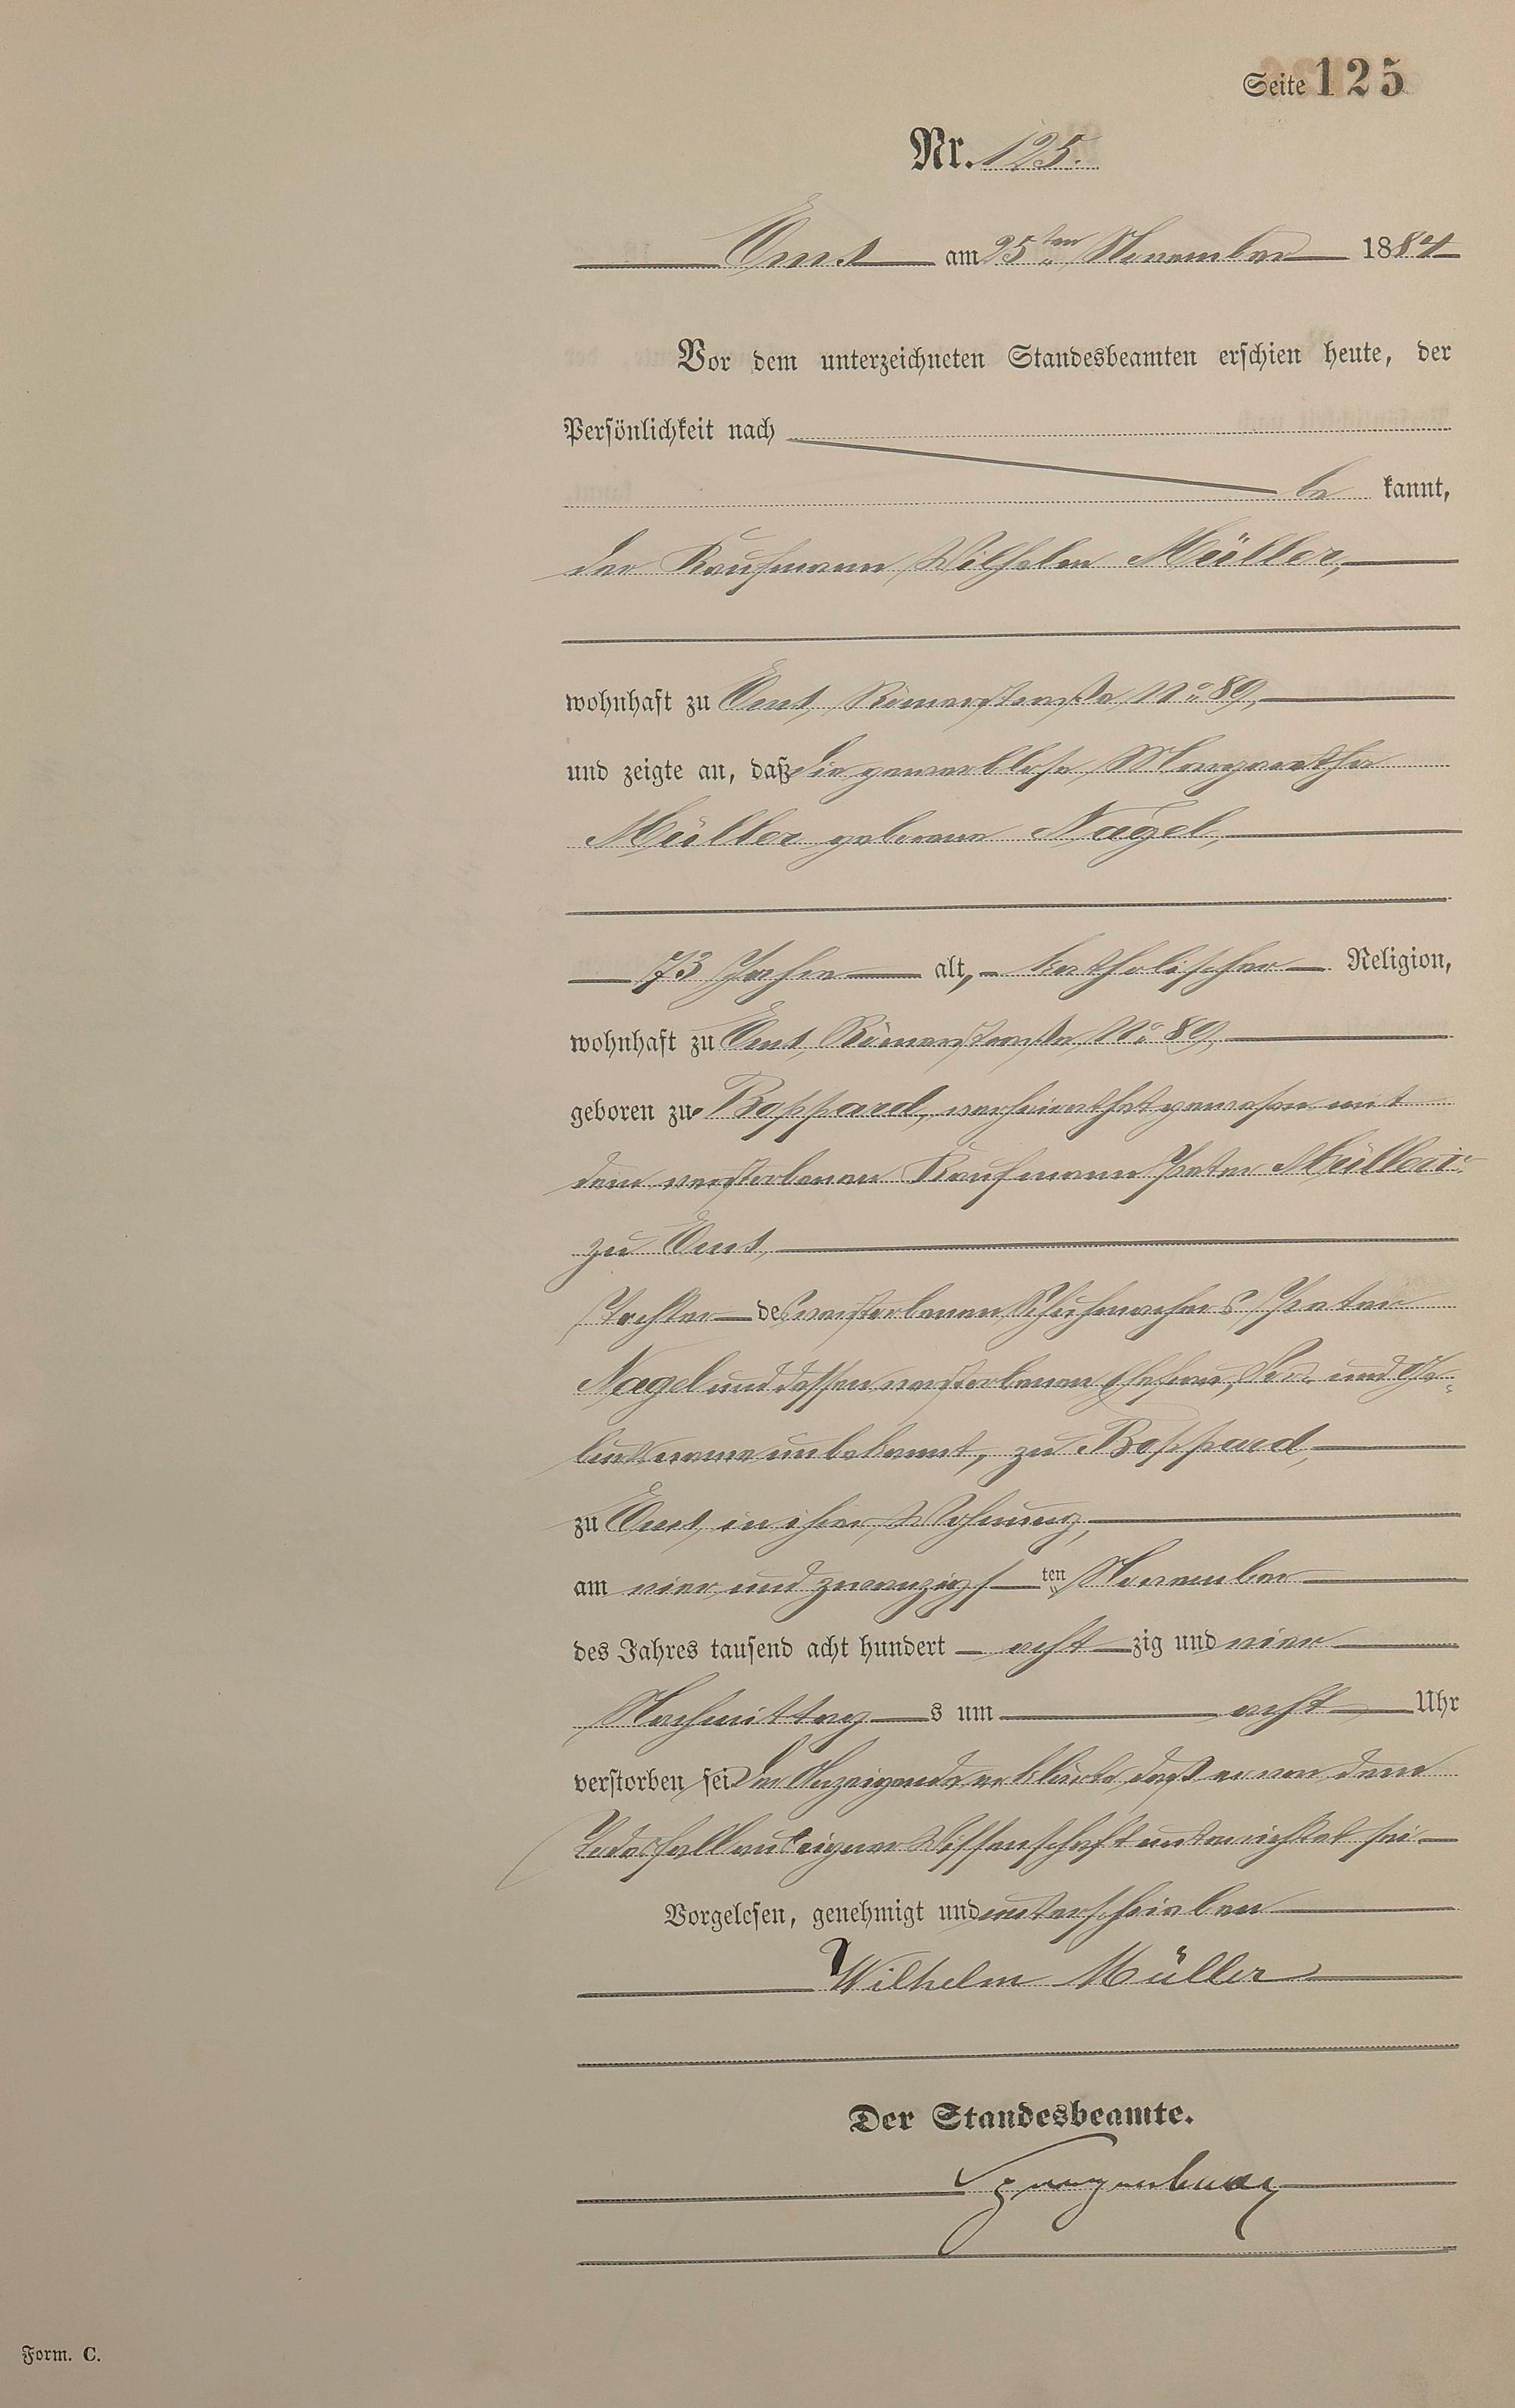 Seite 125
Nr. 125.
Ems am 25ten November 1884
Vor dem unterzeichneten Standesbeamten erschien heute, der
Persönlichkeit nach
be kannt,
der Kaufmann Wilhelm Müller,
wohnhaft zu Ems, Römerstraße No 89,
und zeigte an, daß die gewerblose Margaretha
Müller geborene Nagel,
73 Jahre alt, katholischer Religion,
wohnhaft zu Ems, Römerstraße No 89,
geboren zu Boppard, verheirathet gewesen mit
dem verstorbenen Kaufmann Peter Müller
zu Ems,
Tochter des verstorbenen Schuhmachers Peter
Nagel und dessen verstorbenen Ehefrau, Vor- und Ge-
burtsname unbekannt, zu Boppard,
zu Ems, in ihrer Wohnung,
am vier und zwanzigsten November
des Jahres tausend acht hundert acht zig und vier
Nachmittags um acht Uhr
verstorben sei. Der Anzeigende erklärte, daß er von dem
Todesfall aus eigner Wissenschaft unterrichtet sei
Vorgelesen, genehmigt und unterschrieben
Wilhelm Müller
Der Standesbeamte.
Spangenberg
Form. C.